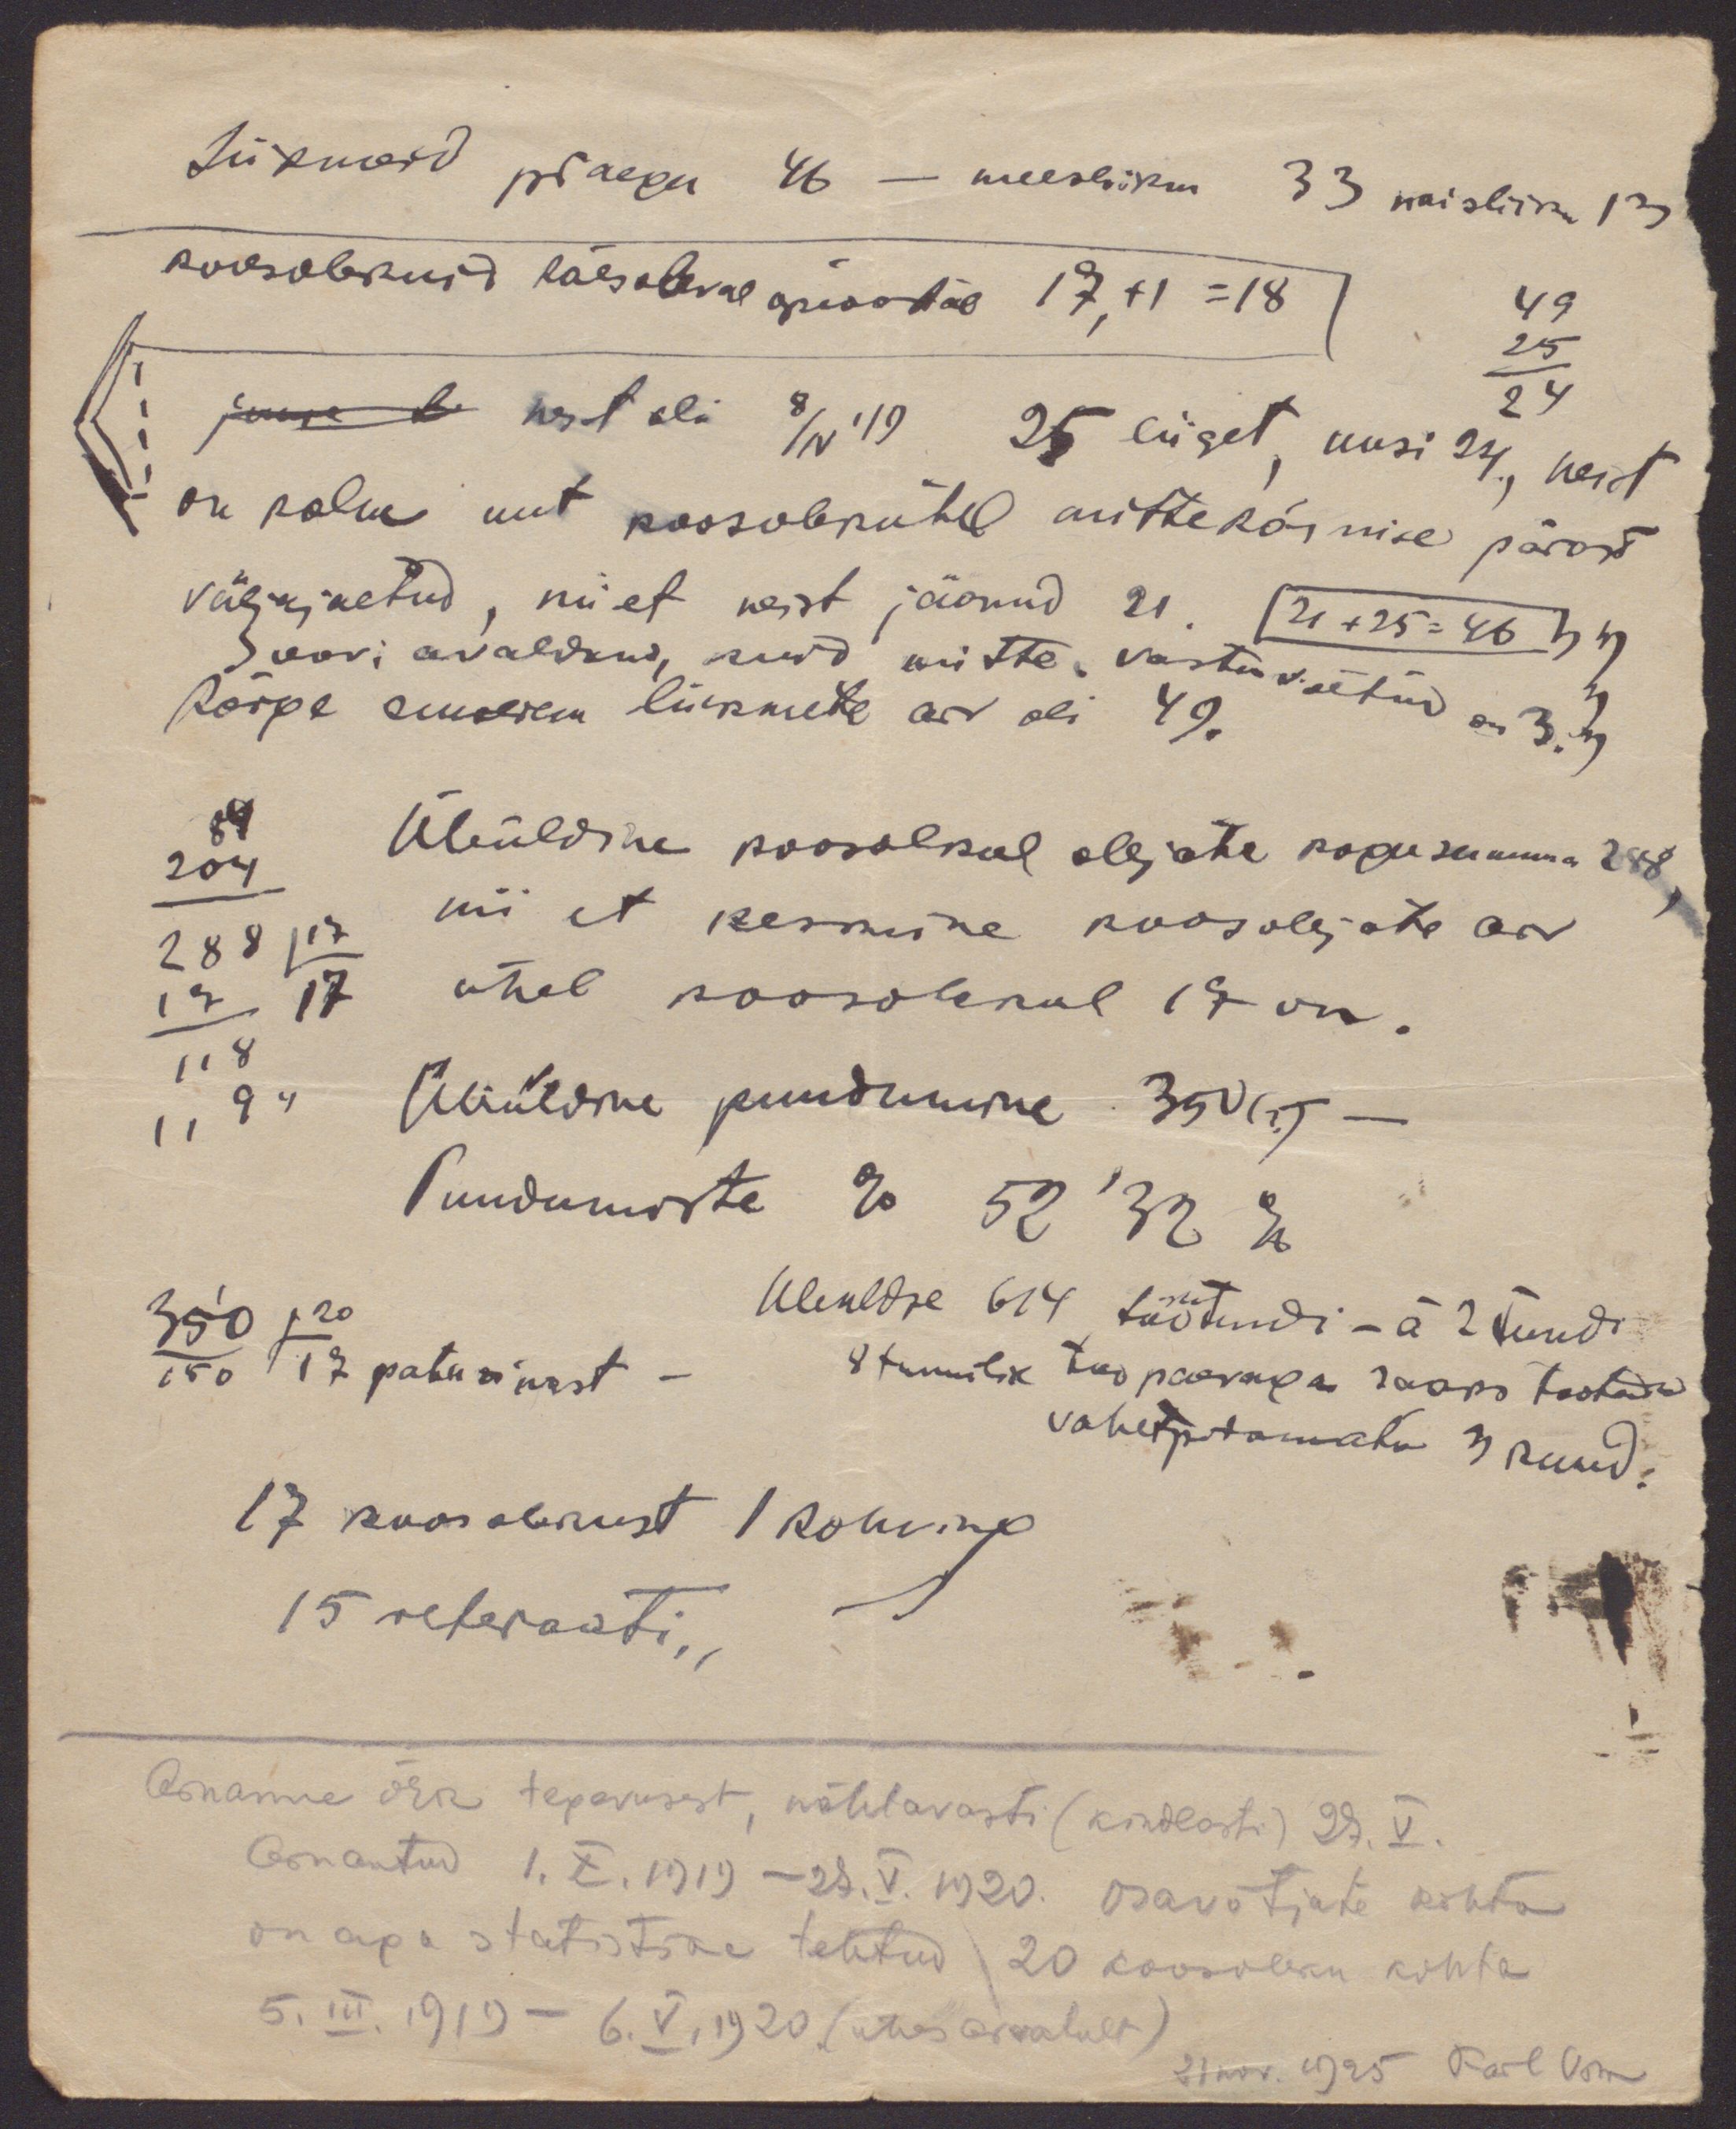 Liikmeid praegu 46 — meesliikm 33 naisliikm 13
koosolekuid käesoleval aastal 17,+1 = 18
49
25
24
neist oli 8/IV '19 25 liiget, uusi 24, neist
on kolm uut koosolekuhel mittekäimise pärast
väljajäetud, nii et neist jäänud 21. 21 + 25 = 46
Soovi avaldand, kuid mitte vastuvõetud on 3.
Kõige suurem liikmete arv oli 49.
84
204
288 17
17 17
118
119
Üleüldine koosolkul olejate kogusumma 288,
nii et keskmine koosolejate arv
ühel koosolekul 17 on.
Üleüldine puudumine 350 —
Puudumiste % 52'32 %
350 20
150 17 pahu nimest —
Üleüldse 614 töötundi – à 2 tundi
8 tunnilik töö paevaga saaks töötada
vahetpidamata 3 kuud.
17 koosolekust 1 kohvine
15 referaati,,
Aruanne tegevusest, nähtavasti (kindlasti) 27. V.
Aruantud 1. X. 1919 – 27. V. 1920. Osavõtjate kohta
on aga statistika tehtud 20 koosoleku kohta
5. III. 1919 – 6. V. 1920 (ühes arvatult)
21 nov. 1925 Karl